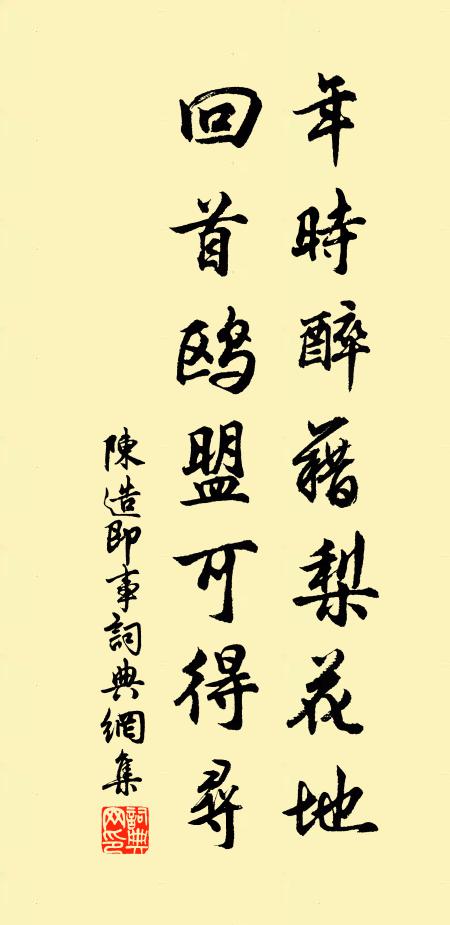 年時醉藉梨花地
回首鸥盟可得尋
陳造即事詞典網集
詞典网印